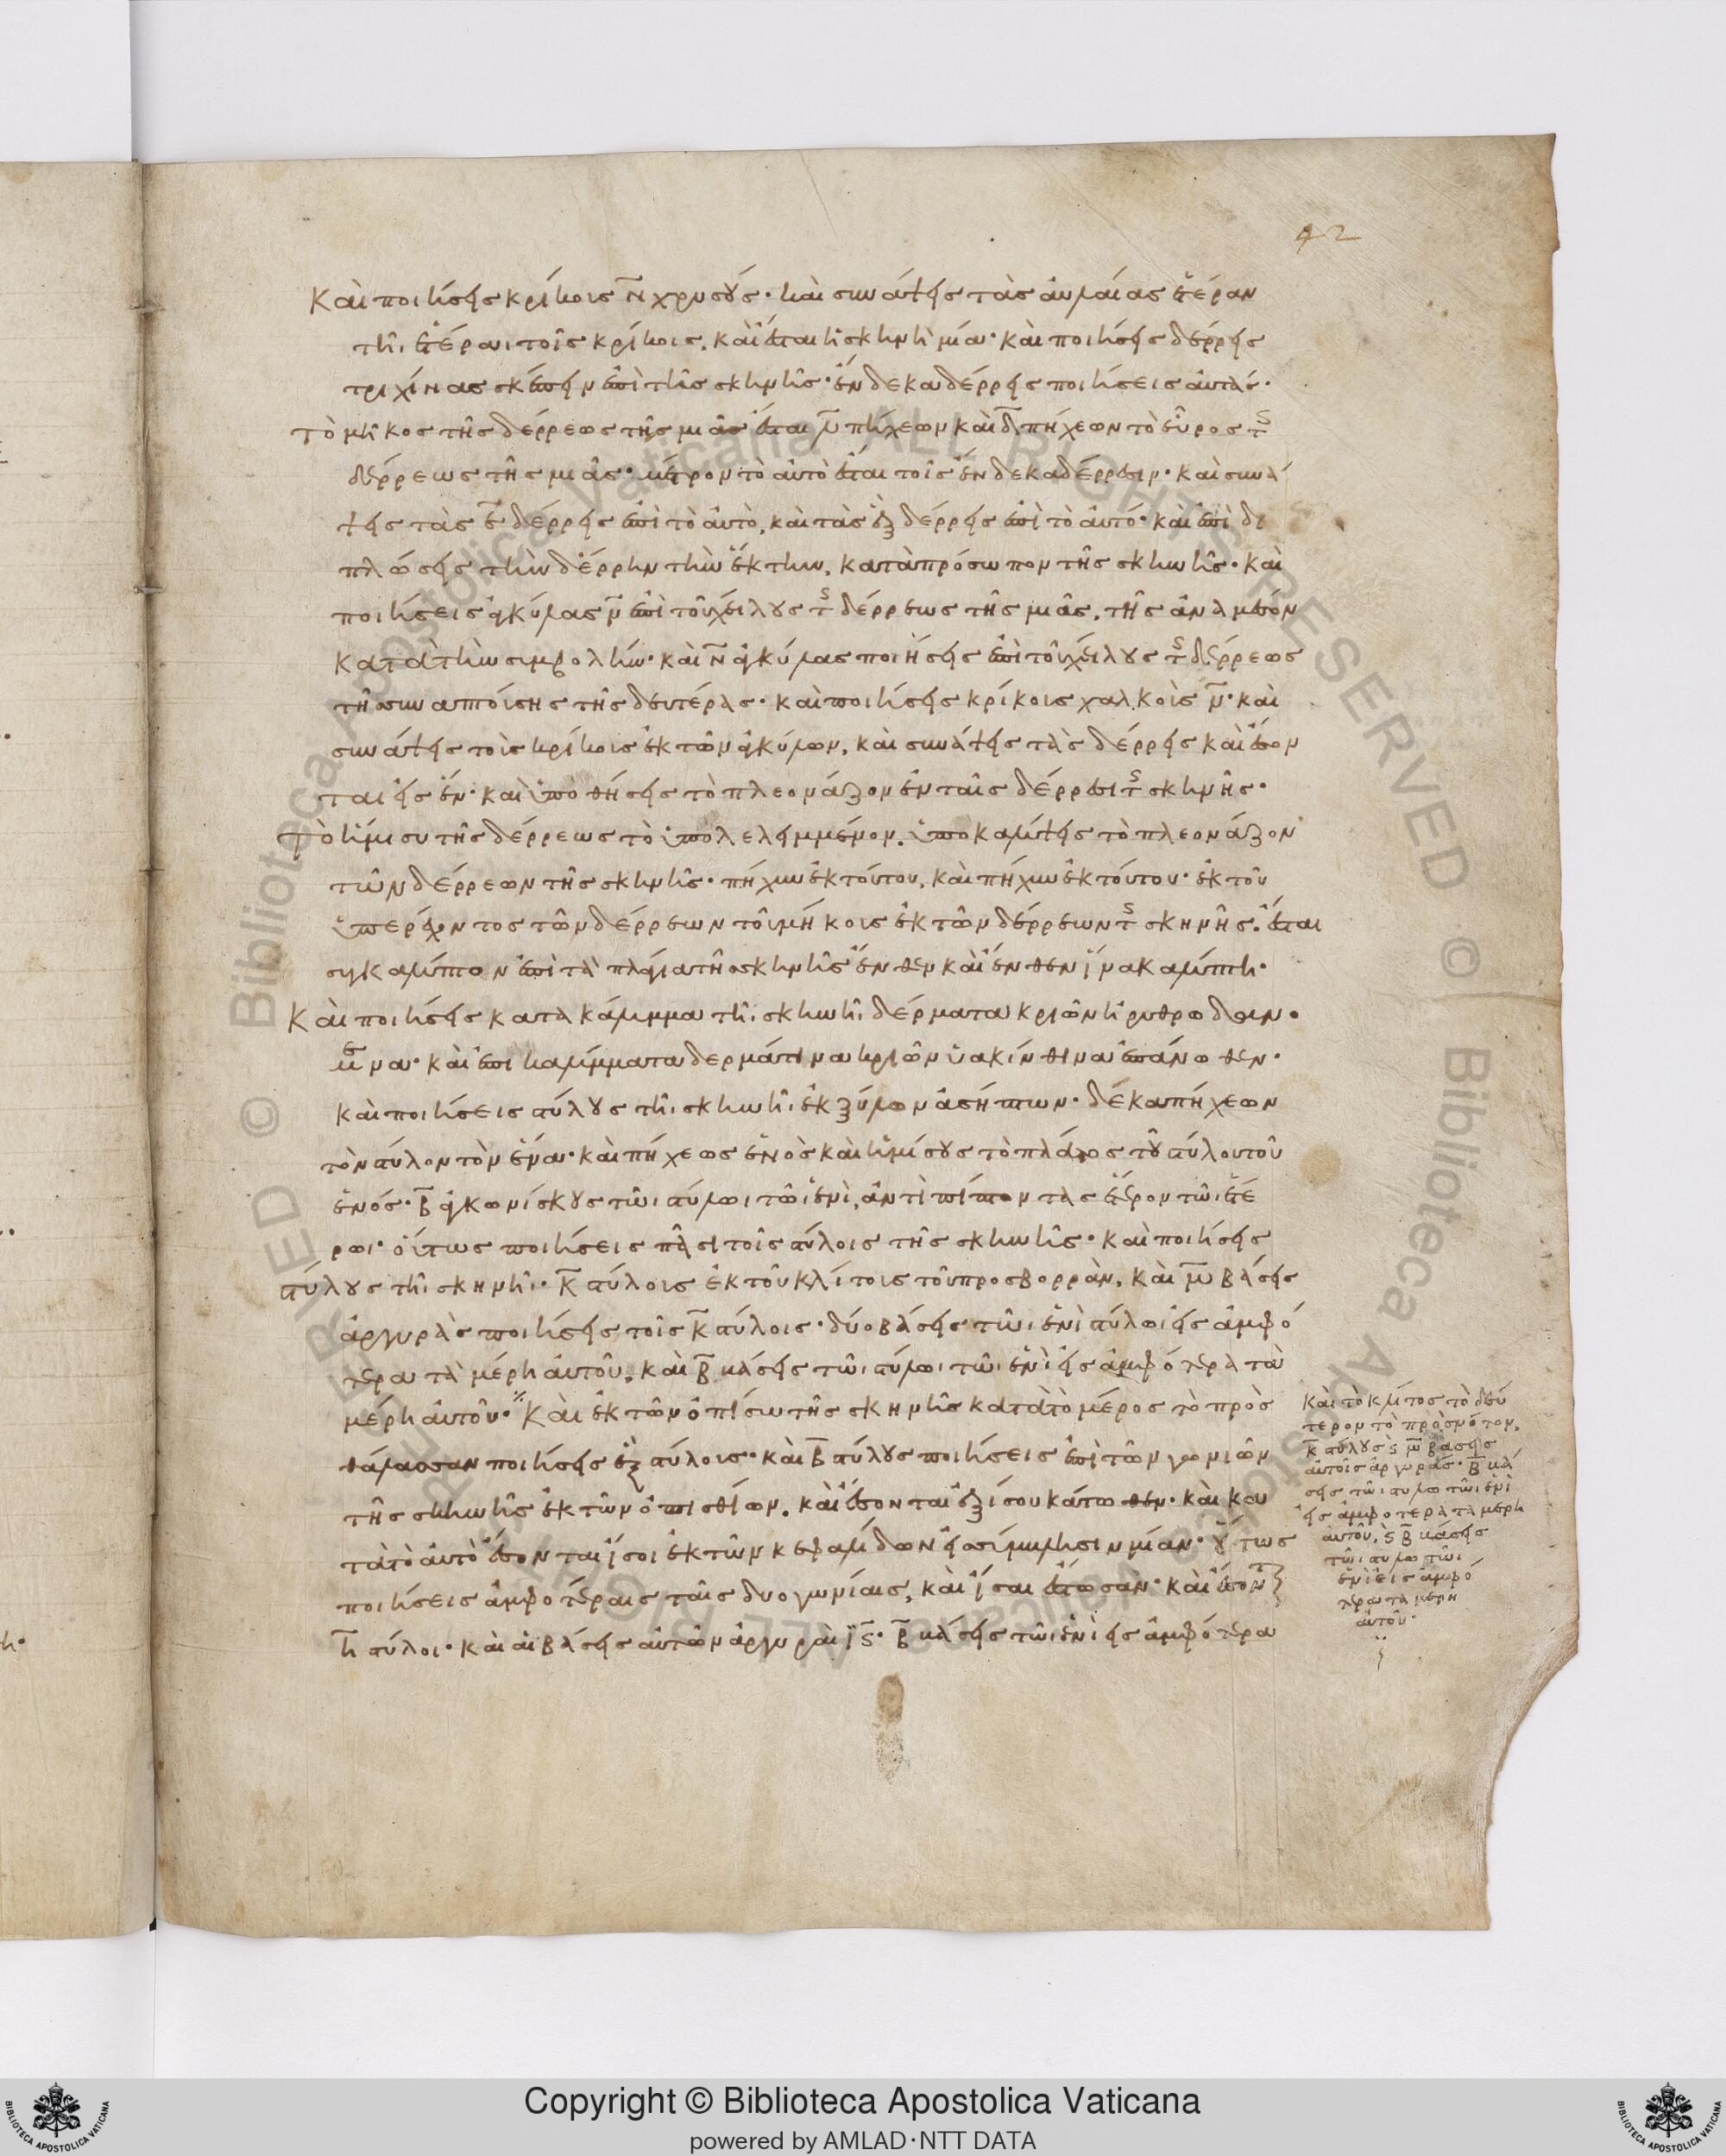 42
Καὶ ποιήσεις κρίκοις ν̅ χρυσοῦς· καὶ συνάψεις τὰς αὐλαίας ἑτέραν
τῆι ἑτέραι τοῖς κρίκοις, καὶ ἔσται ἡ σκηνὴ μία· καὶ ποιήσεις δέρρεις
τριχίνας σκέπειν ἐπὶ τῆς σκηνῆς· ἕνδεκα δέρρεις ποιήσεις αὐτάς·
Τὸ μῆκος τῆς δέρρεως τῆς μιᾶς ἔσται λ̅ πήχεων καὶ δ̅ πήχεων τὸ εὖρος τς
δέρρεως τῆς μιᾶς· μέτρον τὸ αὐτὸ ἔσται τοῖς ἕνδεκα δέρρεσιν· καὶ συνά
ψεις τὰς ε̅ δέρρεις ἐπὶ τὸ αὐτὸ, καὶ τὰς ἓξ δέρρεις ἐπὶ τὸ αὐτό· καὶ ἐπὶ δι
πλώσεις τὴν δέρρην τὴν ἕκτην, κατὰ πρόσωπον τῆς σκηνῆς· καὶ
ποιήσεις ἀγκύλας ν̅ ἐπὶ τοῦ χείλους τς δέρρεως τῆς μιᾶς, τῆς ἀναμέσον
κατὰ τὴν συμβολήν· καὶ ν̅ ἀγκύλας ποιήσεις ἐπὶ τοῦ χείλους τς δέρρεως
τῆς συναπτούσης τῆς δευτέρας· καὶ ποιήσεις κρίκοις χαλκοῖς ν̅· καὶ
συνάψεις τοῖς κρίκοις ἐκ τῶν ἀγκύλων, καὶ συνάψεις τὰς δέρρεις καὶ ἔσον
ται εἰς ἕν· καὶ ὑποθήσεις τὸ πλεονάζον ἐν ταῖς δέρρεσι τς σκηνῆς·
Τὸ ἥμισυ τῆς δέρρεως τὸ ὑπολελειμμένον, ὑποκαλύψεις τὸ πλεονάζον
τῶν δέρρεων τῆς σκηνῆς· πῆχυν ἐκ τούτου, καὶ πῆχυν ἐκ τούτου· ἐκ τοῦ
ὑπερέχοντος τῶν δέρρεων τοῦ μήκοις ἐκ τῶν δέρρεων τς σκηνῆς· ἔσται
συγκαλύπτον ἐπὶ τὰ πλάγια τῆς σκηνῆς ἔνθεν καὶ ἔνθεν ἵνα καλύπτη·
Καὶ ποιήσεις κατακάλυμμα τῆι σκηνῆι δέρματα κριῶν ἠρυθροδων·
μένα· καὶ ἐπικαλύμματα δερμάτινα κριῶν ὑακίνθινα ἐπάνωθεν·
καὶ ποιήσεις στύλους τῆι σκηνῆι ἐκ ξύλων ἀσήπτων· δέκα πήχεων
τὸν στύλον τὸν ἕνα· καὶ πήχεως ἑνὸς καὶ ἡμίσους τὸ πλάτος τοῦ στύλου τοῦ
ἑνός· β̅ ἀγκωνίσκους τῶι στύλωι τῶι ἑνὶ, ἀντιπίπτοντας ἕτερον τῶι ἑτέ
ρωι· οὕτως ποιήσεις πᾶσι τοῖς στύλοις τῆς σκηνῆς· καὶ ποιήσεις
στύλους τῆι σκηνῆι· κ̅ στύλοις ἐκ τοῦ κλίτοις τοῦ προς βορρὰν, καὶ μ̅ βάσεις
ἀργυρὰς ποιήσεις τοῖς κ̅ στύλοις· δύο βάσεις τῶι ἑνὶ στύλωι εἰς ἀμφό
τερα τὰ μέρη αὐτοῦ, καὶ β̅ βάσεις τῶι στύλωι τῶι ἑνὶ εἰς ἀμφότερα τὰ
μέρη αὐτοῦ· Καὶ ἐκ τῶν ὀπίσω τῆς σκηνῆς κατὰ τὸ μέρος τὸ πρὸς
θάλασσαν ποιήσεις ἓξ στύλοις· καὶ β̅ στύλους ποιήσεις ἐπὶ τῶν γωνιῶν
τῆς σκηνῆς ἐκ τῶν ὀπισθίων, καὶ ἔσονται ἐξίσου κάτωθεν· καὶ κα
τὰ τὸ αὐτὸ ἔσονται ἴσοι ἐκ τῶν κεφαλίδων εἰς σύμβλησιν μίαν· οὕτως
ποιήσεις ἀμφοτέραις ταῖς δυο γωνίαις, καὶ ἴσαι ἔστωσαν· καὶ ἔσοντ
η̅ στύλοι· καὶ αἱ βάσεις αὐτῶν ἀργυραῖ ις̅· β̅ βάσεις τῶι ἑνὶ εἰς ἀμφότερα
καὶ τὸ κλίτος τὸ δεύ
τερον τὸ πρὸς νότον,
κ̅ στύλους ϗ μ̅ βάσεις
αὐτοῖς ἀργυρᾶς· β̅ βά
σεις τῶι στυλω τῶι ἑνὶ
εἰς ἀμφοτερα τὰ μερη
αὐτοῦ, ϗ β̅ βάσεις
τῶι στυλω τῶι
ἑνὶ εἰς ἀμφό
τερα τὰ μερη
αὐτοῦ·
Copyright © Biblioteca Apostolica Vaticana
powered by AMLAD·NTT DATA